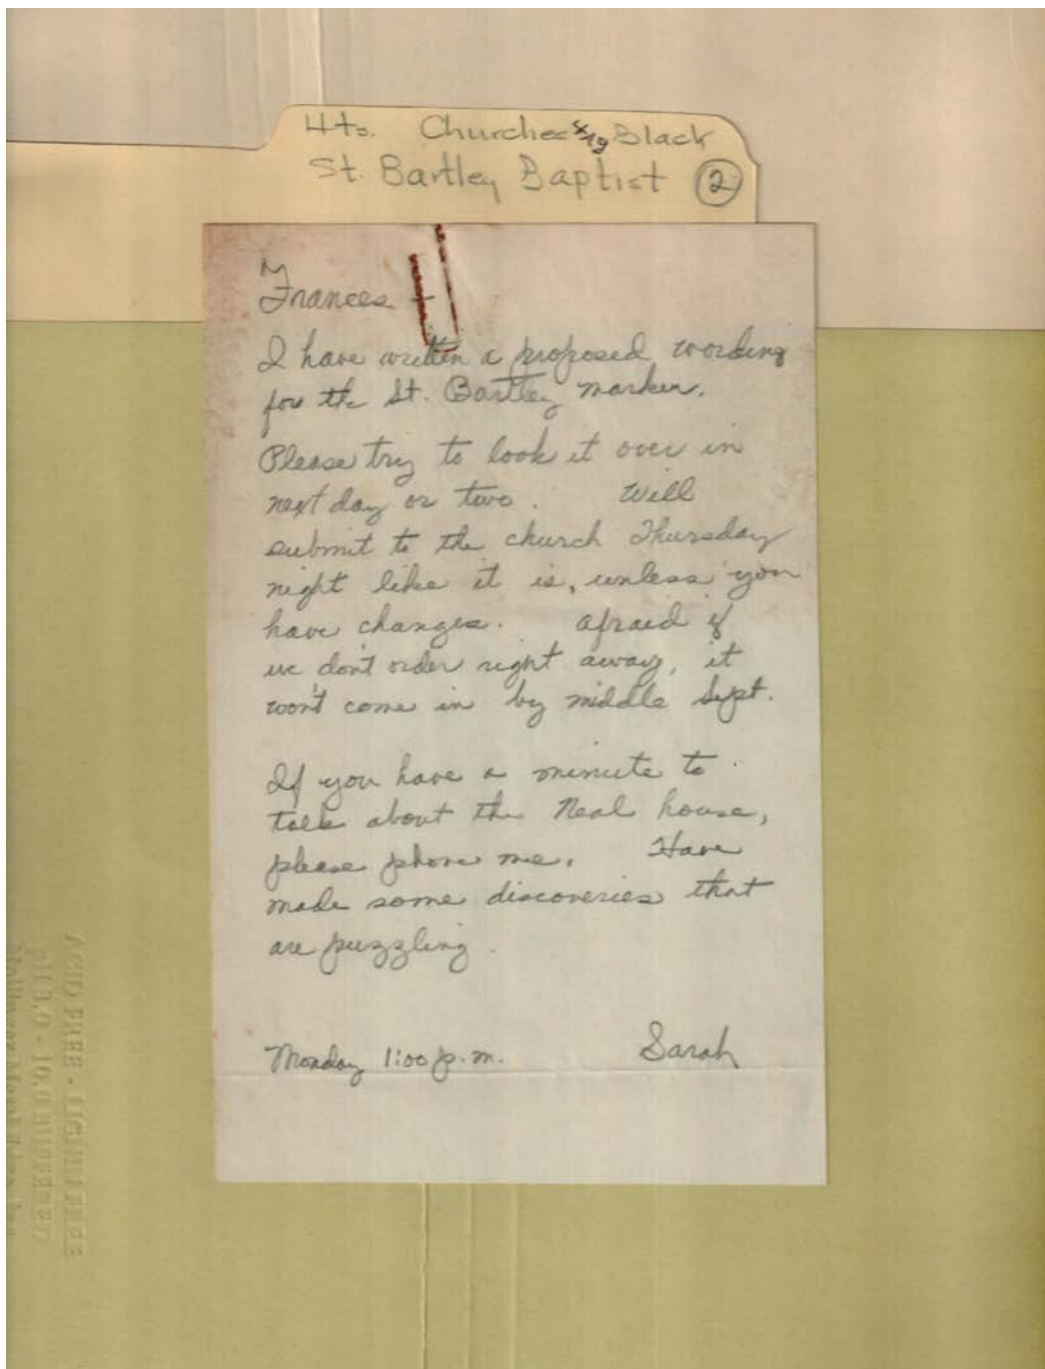 Hts. Churches Black
St. Bartley Baptist 2
Frances -
I have written a proposed wording
for the St. Bartley marker.
Please try to look it over in
next day or two. Will
submit to the church Thursday
night like it is, unless you
have changes. Afraid if
we don't order right away, it
won't come in by middle Sept.
If you have a minute to
talk about the Neal house,
please phone me. Have
made some discoveries that
are puzzling.
Monday 1:00 p.m. Sarah
ACID FREE - LIGNIN FREE